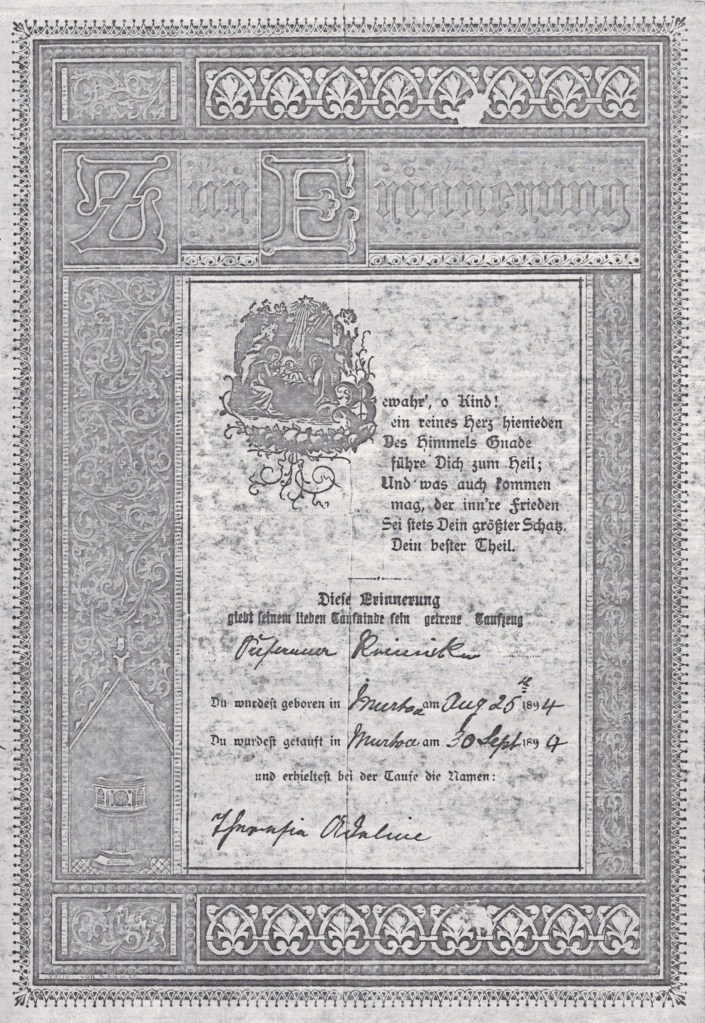 Zur Erinnerung
ewahr', o Kind!
ein reines Herz hienieden
Des Himmels Gnade
führe Dich zum Heil;
Und was auch kommen
mag, der inn're Frieden
Sei stets Dein größter Schatz.
Dein bester Theil.
Diese Erinnerung
giebt seinem lieben Taufkinde sein getreue Taufzeug
Du wurdest geboren in Murtoa am Aug 25 1894
Du wurdest getauft in Murtoa am 30 Sept 1894
und erhieltest bei der Taufe die Namen: